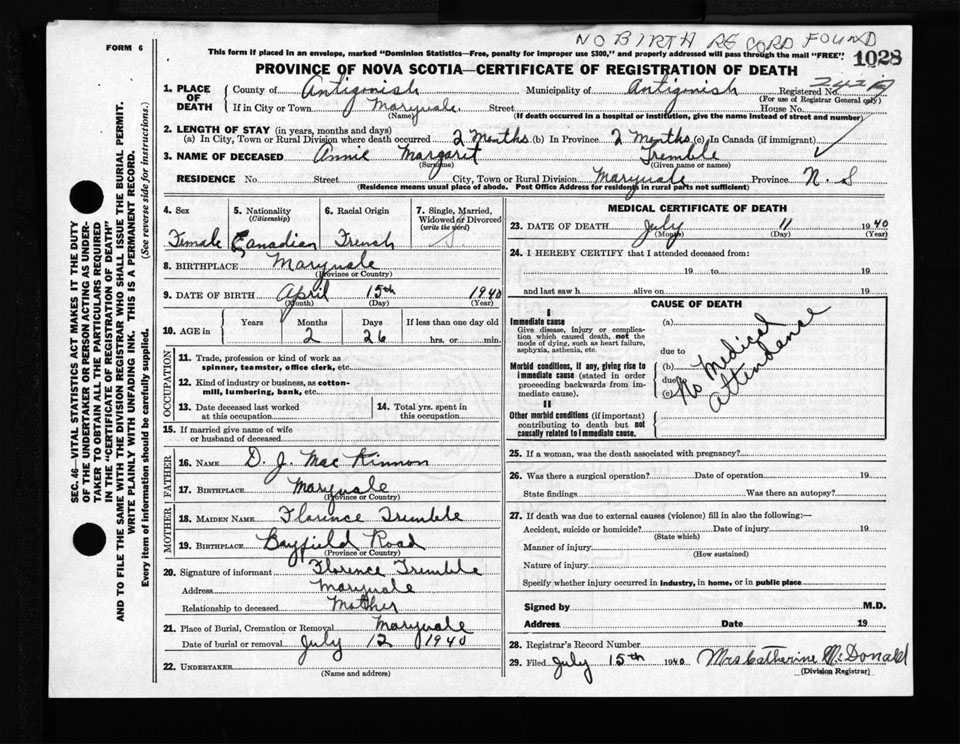 NO BIRTH RECORD FOUND
FORM 6
This form if placed in an envelope, marked "Dominion Statistics—Free, penalty for improper use $300," and properly addressed will pass through the mail "FREE".
1028
PROVINCE OF NOVA SCOTIA—CERTIFICATE OF REGISTRATION OF DEATH
1. PLACE OF DEATH
County of Antigonish Municipality of Antigonish Registered No.
(For use of Registrar General only)
If in City or Town Maryvale Street House No.
(Name) (If death occurred in a hospital or institution, give the name instead of street and number)
2. LENGTH OF STAY (in years, months and days)
(a) In City, Town or Rural Division where death occurred 2 Months (b) In Province 2 Months (c) In Canada (if immigrant)
3. NAME OF DECEASED Annie Margaret Tremble
(Surname) (Given name or names)
RESIDENCE No. Street City, Town or Rural Division Maryvale Province N. S
(Residence means usual place of abode. Post Office Address for residents in rural parts not sufficient)
4. Sex
Female
5. Nationality
(Citizenship)
Canadian
6. Racial Origin
French
7. Single, Married, Widowed or Divorced
(write the word)
S.
8. BIRTHPLACE Maryvale
(Province or Country)
9. DATE OF BIRTH April 15th 1940
(Month) (Day) (Year)
10. AGE in
Years Months Days If less than one day old
2 26 hrs. or min.
OCCUPATION
11. Trade, profession or kind of work as
spinner, teamster, office clerk, etc.
12. Kind of industry or business, as cotton-
mill, lumbering, bank, etc.
13. Date deceased last worked
at this occupation
14. Total yrs. spent in
this occupation
15. If married give name of wife
or husband of deceased
FATHER
16. NAME D. J. Mac Kinnon
17. BIRTHPLACE Maryvale
(Province or Country)
MOTHER
18. MAIDEN NAME Florence Tremble
19. BIRTHPLACE Bayfield Road
(Province or Country)
20. Signature of informant Florence Tremble
Address Maryvale
Relationship to deceased Mother
21. Place of Burial, Cremation or Removal Maryvale
Date of burial or removal July 12 1940
22. UNDERTAKER
(Name and address)
MEDICAL CERTIFICATE OF DEATH
23. DATE OF DEATH July 11 1940
(Month) (Day) (Year)
24. I HEREBY CERTIFY that I attended deceased from:
19 to 19
and last saw h alive on 19
CAUSE OF DEATH
I
Immediate cause
Give disease, injury or complica-
tion which caused death, not the
mode of dying, such as heart failure,
asphyxia, asthenia, etc.
(a)
due to
Morbid conditions, if any, giving rise to
immediate cause (stated in order
proceeding backwards from im-
mediate cause).
(b)
due to
(c)
No Medical
attendence
II
Other morbid conditions (if important)
contributing to death but not
causally related to immediate cause.
25. If a woman, was the death associated with pregnancy?
26. Was there a surgical operation? Date of operation 19
State findings Was there an autopsy?
27. If death was due to external causes (violence) fill in also the following:—
Accident, suicide or homicide? Date of injury 19
(State which)
Manner of injury
(How sustained)
Nature of injury
Specify whether injury occurred in industry, in home, or in public place
Signed by M.D.
Address Date 19
28. Registrar's Record Number
29. Filed July 15th 1940 Mrs Catherine McDonald
(Division Registrar)
SEC. 46—VITAL STATISTICS ACT MAKES IT THE DUTY
OF THE UNDERTAKER OR PERSON ACTING AS UNDER-
TAKER TO OBTAIN ALL THE PARTICULARS REQUIRED
IN THE "CERTIFICATE OF REGISTRATION OF DEATH"
AND TO FILE THE SAME WITH THE DIVISION REGISTRAR WHO SHALL ISSUE THE BURIAL PERMIT.
WRITE PLAINLY WITH UNFADING INK. THIS IS A PERMANENT RECORD.
Every item of information should be carefully supplied. (See reverse side for instructions.)